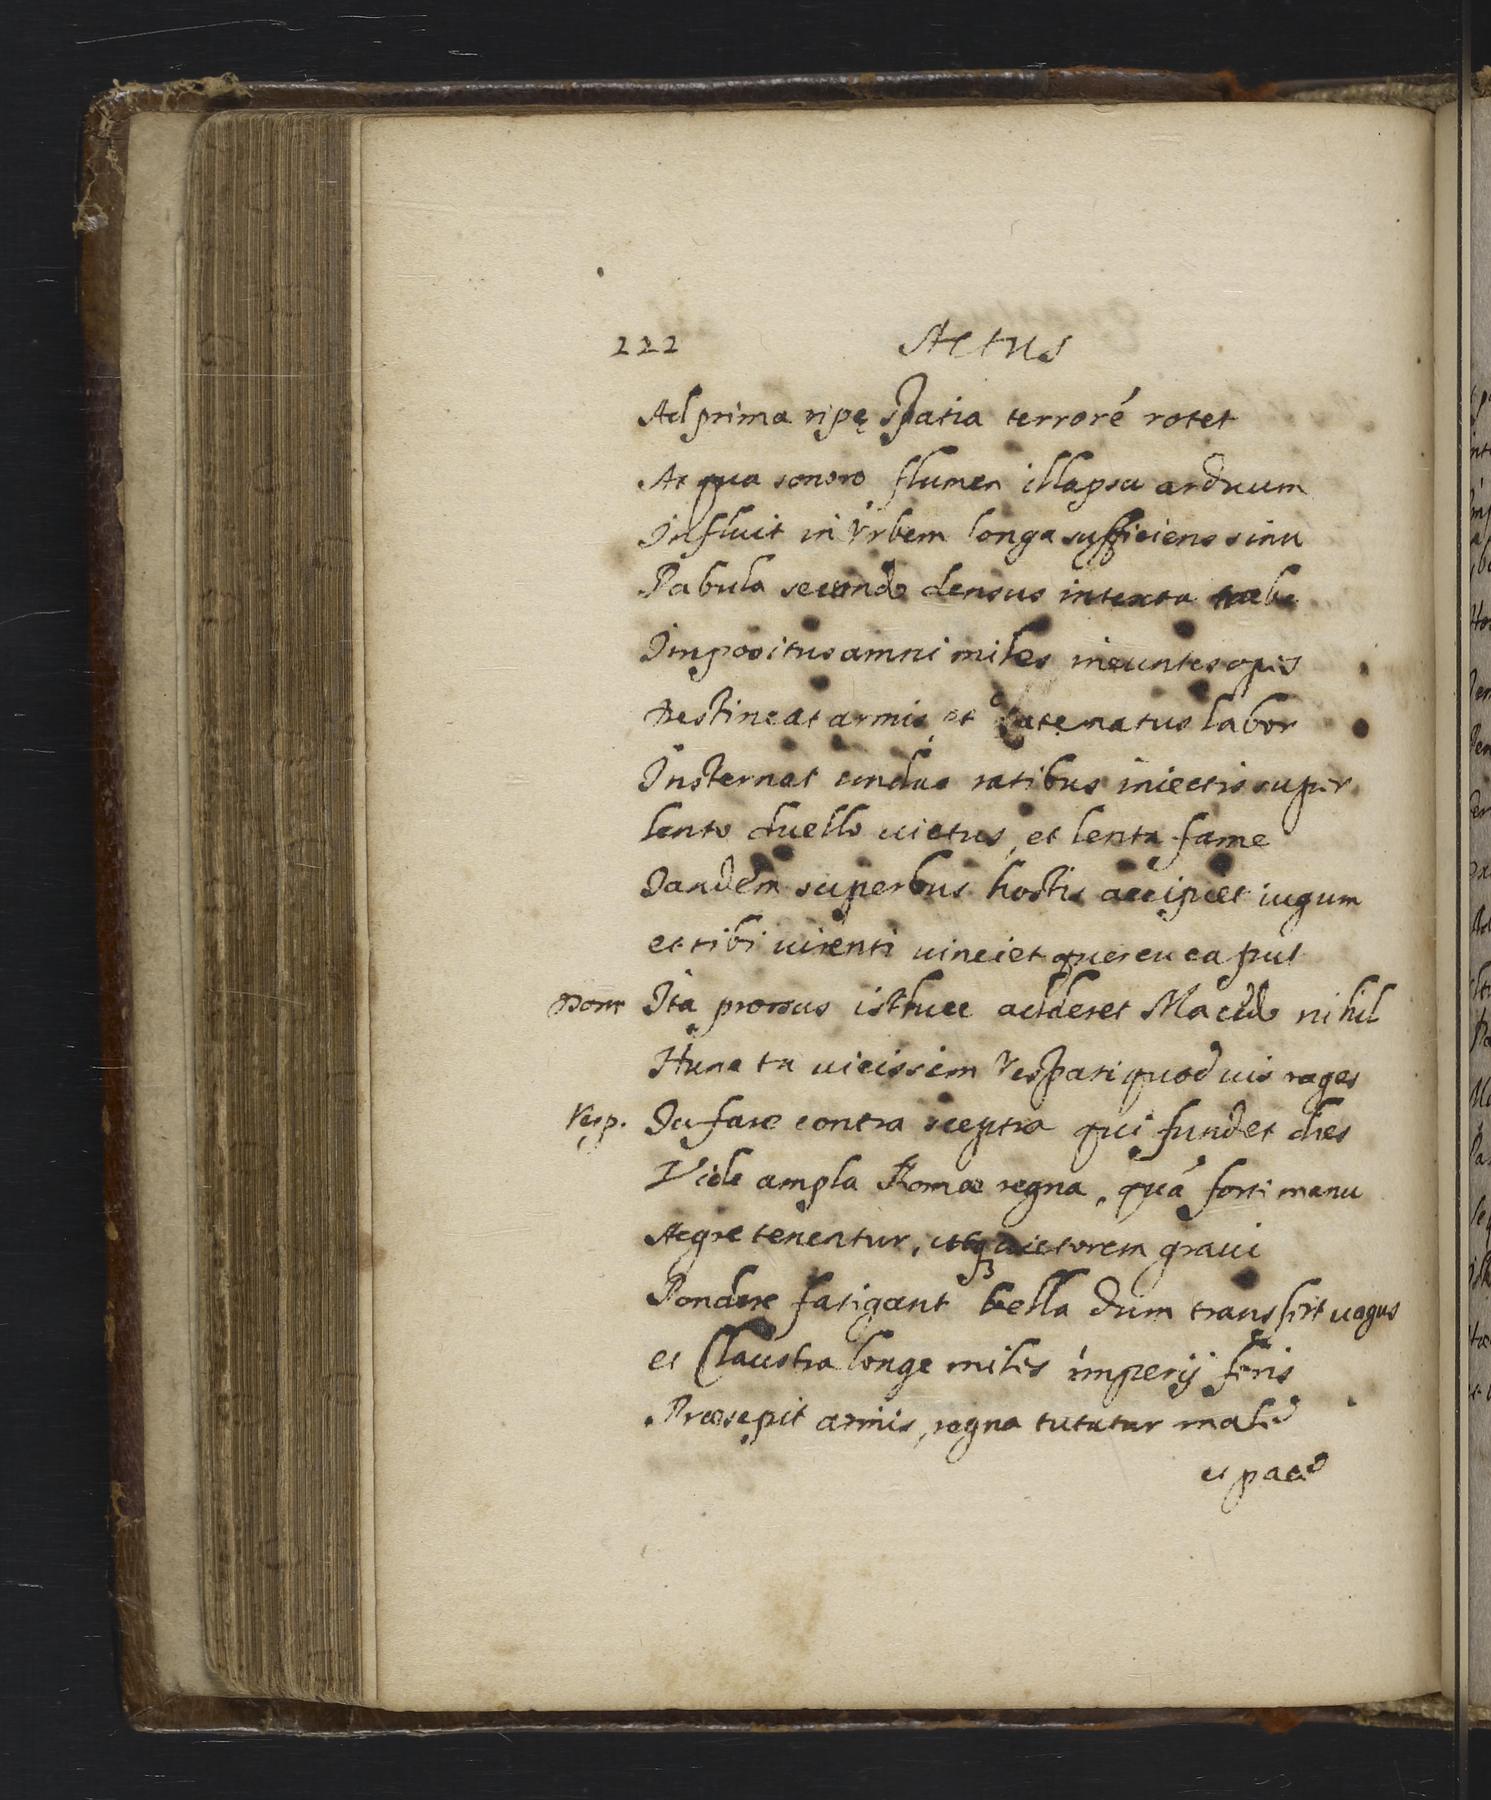 222 Actus
Ad prima ripę spatia terrorē rotet
At qua sonoro flumen illapsu arduum
Influit in Vrbem longa sufficiens sinu
Pabula secundo densus intexta trabe
Impositus amni miles ineuntes opes
Destineat armis, et catenatus labor
Insternat undas ratibus iniectis super
lento duello uictus, et lenta fame
Tandem superbus hostis accipiet iugum
et tibi uirenti uinciet quercu caput
Dom Ita prorsus isthuce adderet Macedo nihil
Hunc tu uicissim Vespasi quoduis roges
Vesp. Tu fare contra sceptra qui fundet dies
Vide ampla Romæ regna, quā forti manu
Aegre tenentur, utq3 uictorem graui
Pondere fatigant bella dum transfert uagus
et Claustra longe miles imperij feris
Præsepit armis, regna tutatur malis
et pacis